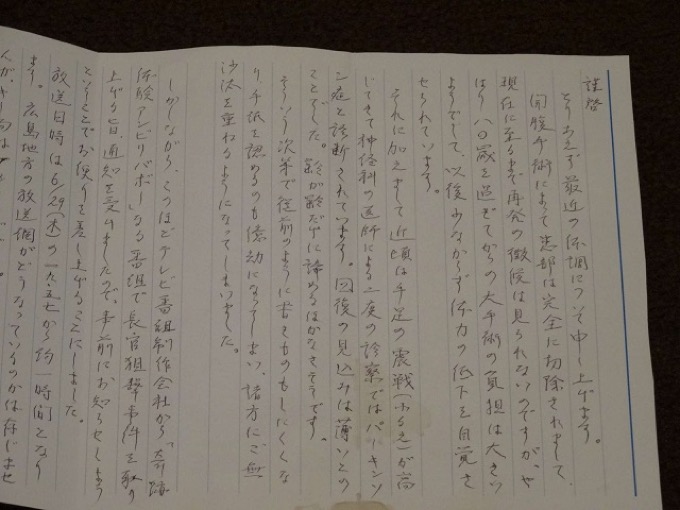 謹啓
とりあえず最近の体調について申し上げます。
開腹手術によって患部は完全に切除されまして、
現在に至るまで再発の徴候は見られないのですが、や
はり八〇歳を過ぎてからの大手術の負担は大きい
ようでして、以後少なからず体力の低下を自覚さ
せられています。
それに加えまして近頃は手足の震戦(ふるえ)が高
じてきて神経科の医師による二度の診察ではパーキンソ
ン症と診断されています。回復の見込みは薄いとの
ことでした。齢が齢だけに諦めるほかなさそうです。
そういう次第で従前のように書きものもしにくくな
り、手紙を認めるのも億劫になってしまい、諸方にご無
沙汰を重ねるようになってしまいました。
しかしながら、このほどテレビ番組制作会社から「奇跡
体験アンビリバボー」なる番組で長官狙撃事件を取り
上げる旨、通知を受けましたので、事前にお知らせしよう
ということでお便りを差し上げることにしました。
放送日時は6/29(木)の一九:五七から約一時間となり
ます。広島地方の放送網がどうなっているのかは存じませ
んが、